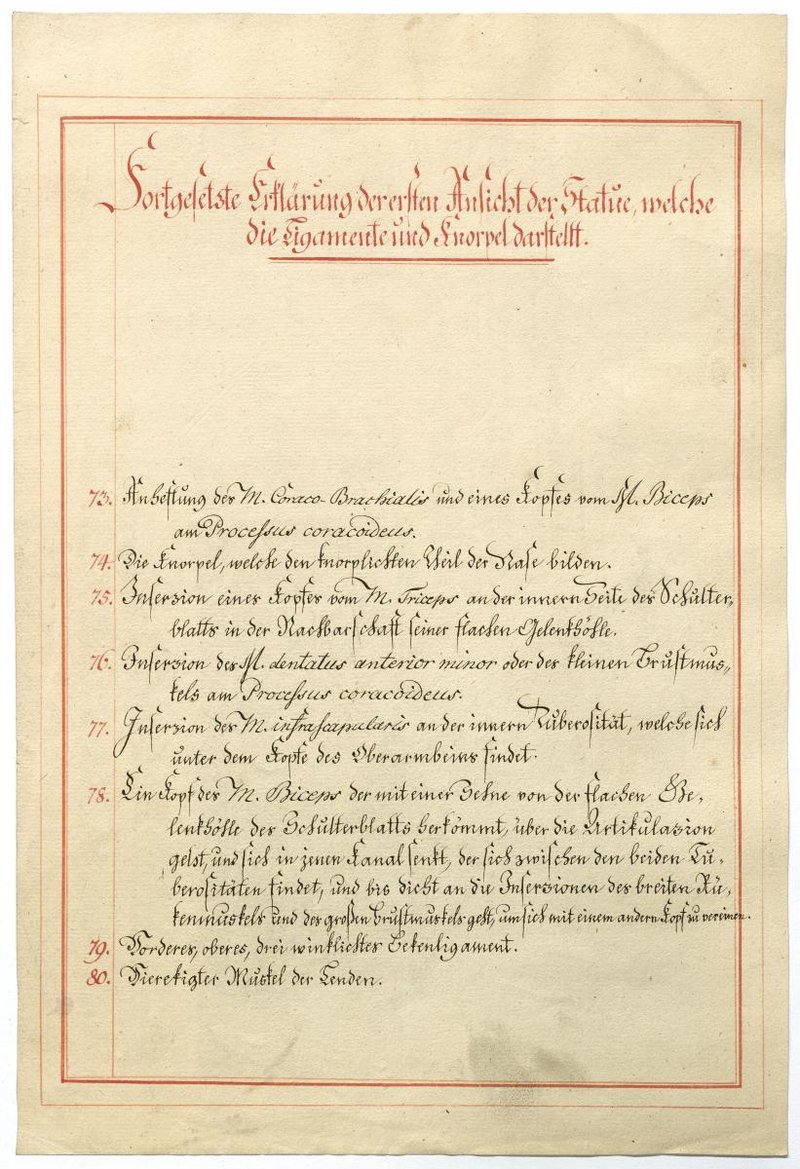 Fortgesetzte Erklärung der ersten Ansicht der Statue, welche
die Ligamente und Knorpel darstellt.
73. Anheftung des M. Coraco-Brachialis und eines Kopfes vom M. Biceps
am Processus coracoideus.
74. Die Knorpel, welche den knorplichten Theil der Nase bilden.
75. Inserzion eines Kopfes vom M. Triceps an der innern Seite des Schulter„
blatts in der Nachbarschaft seiner flachen Gelenkhöhle.
76. Inserzion des M. dentatus anterior minor oder des kleinen Brustmus„
kels am Processus coracoideus.
77. Inserzion des M. infrascapularis an der innern Tuberosität, welche sich
unter dem Kopfe des Oberarmbeins findet.
78. Ein Kopf des M. Biceps der mit einer Sehne von der flachen Ge„
lenkhöhle des Schulterblatts herkömmt, über die Artikulazion
geht, und sich in jenen Kanal senkt, der sich zwischen den beiden Tu„
berositäten findet, und bis dicht an die Inserzionen des breiten Rü„
kenmuskels und des großen Brustmuskels geht, um sich mit einem andern Kopf zu vereinen.
79. Vorderes, oberes, drei winklichtes Bekenligament.
80. Vierekigter Muskel der Lenden.